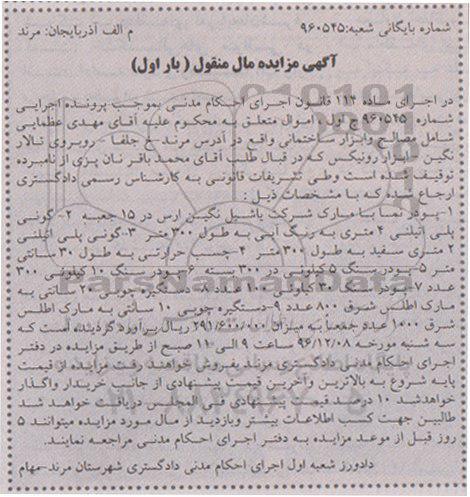 شماره بایگانی شعبه:۹۶۰۵۴۵ م الف آذربایجان: مرند
آگهی مزایده مال منقول ( بار اول)
در اجرای ماده ۱۱۴ قانون اجرای احکام مدنی بموجب پرونده اجرایی
شماره ۹۶۰۵۴۵ ج اول ، اموال متعلق به محکوم علیه آقای مهدی عظمایی
شامل مصالح وابزار ساختمانی واقع در آدرس مرند-خ جلفا روبروی تالار
نگین - ابزار رونیکس که در قبال طلب آقای محمد باقر نان پزی از نامبرده
توقیف شده است وطی تشریفات قانونی به کارشناس رسمی دادگستری
ارجاع شد که با مشخصات ذیل :
۱-پودر نما با مارک شرکت پاشیل نگین ارس در ۱۵ جعبه ۲- گونی
پلی اتیلنی ۴ متری به رنگ آبی به طول ۳۰۰ متر ۳-گونی پلی اتیلنی
۲ متری سفید به طول ۳۰۰ متر ۴-چسب حرارتی به طول ۳۰ سانتی
متر ۵-پودر سنگ ۵ کیلویی در ۳۰۰ بسته ۶-پودر سنگ ۱۰ کیلویی ۳۰۰
عدد ۷-پودر سنگ کیلویی دستگیره چوبی ۲۰ سانتی به
مارک اطلس شرق ۸۰۰ عدد ۹-دستگیره چوبی ۱۰ سانتی به مارک اطلس
شرق ۱۰۰۰ عدد جمعاً به میزان ۲۹۱/۶۰۰/۰۰۰ ریال برآورد گردیده است که
سه شنبه مورخه ۹۶/۱۲/۰۸ ساعت ۹ الی ۱۱ صبح از طریق مزایده در دفتر
اجرای احکام مدنی دادگستری مرند بفروش خواهند رفت مزایده از قیمت
پایه شروع به بالاترین وآخرین قیمت پیشنهادی از جانب خریدار واگذار
خواهدشد ۱۰ درصد قیمت پیشنهادی فی المجلس دریافت خواهد شد
طالبین جهت کسب اطلاعات بیشتر وبازدید از مال مورد مزایده میتوانند ۵
روز قبل از موعد مزایده به دفتر اجرای احکام مدنی مراجعه نمایند.
دادورز شعبه اول اجرای احکام مدنی دادگستری شهرستان مرند-مهام
ParsNamadData